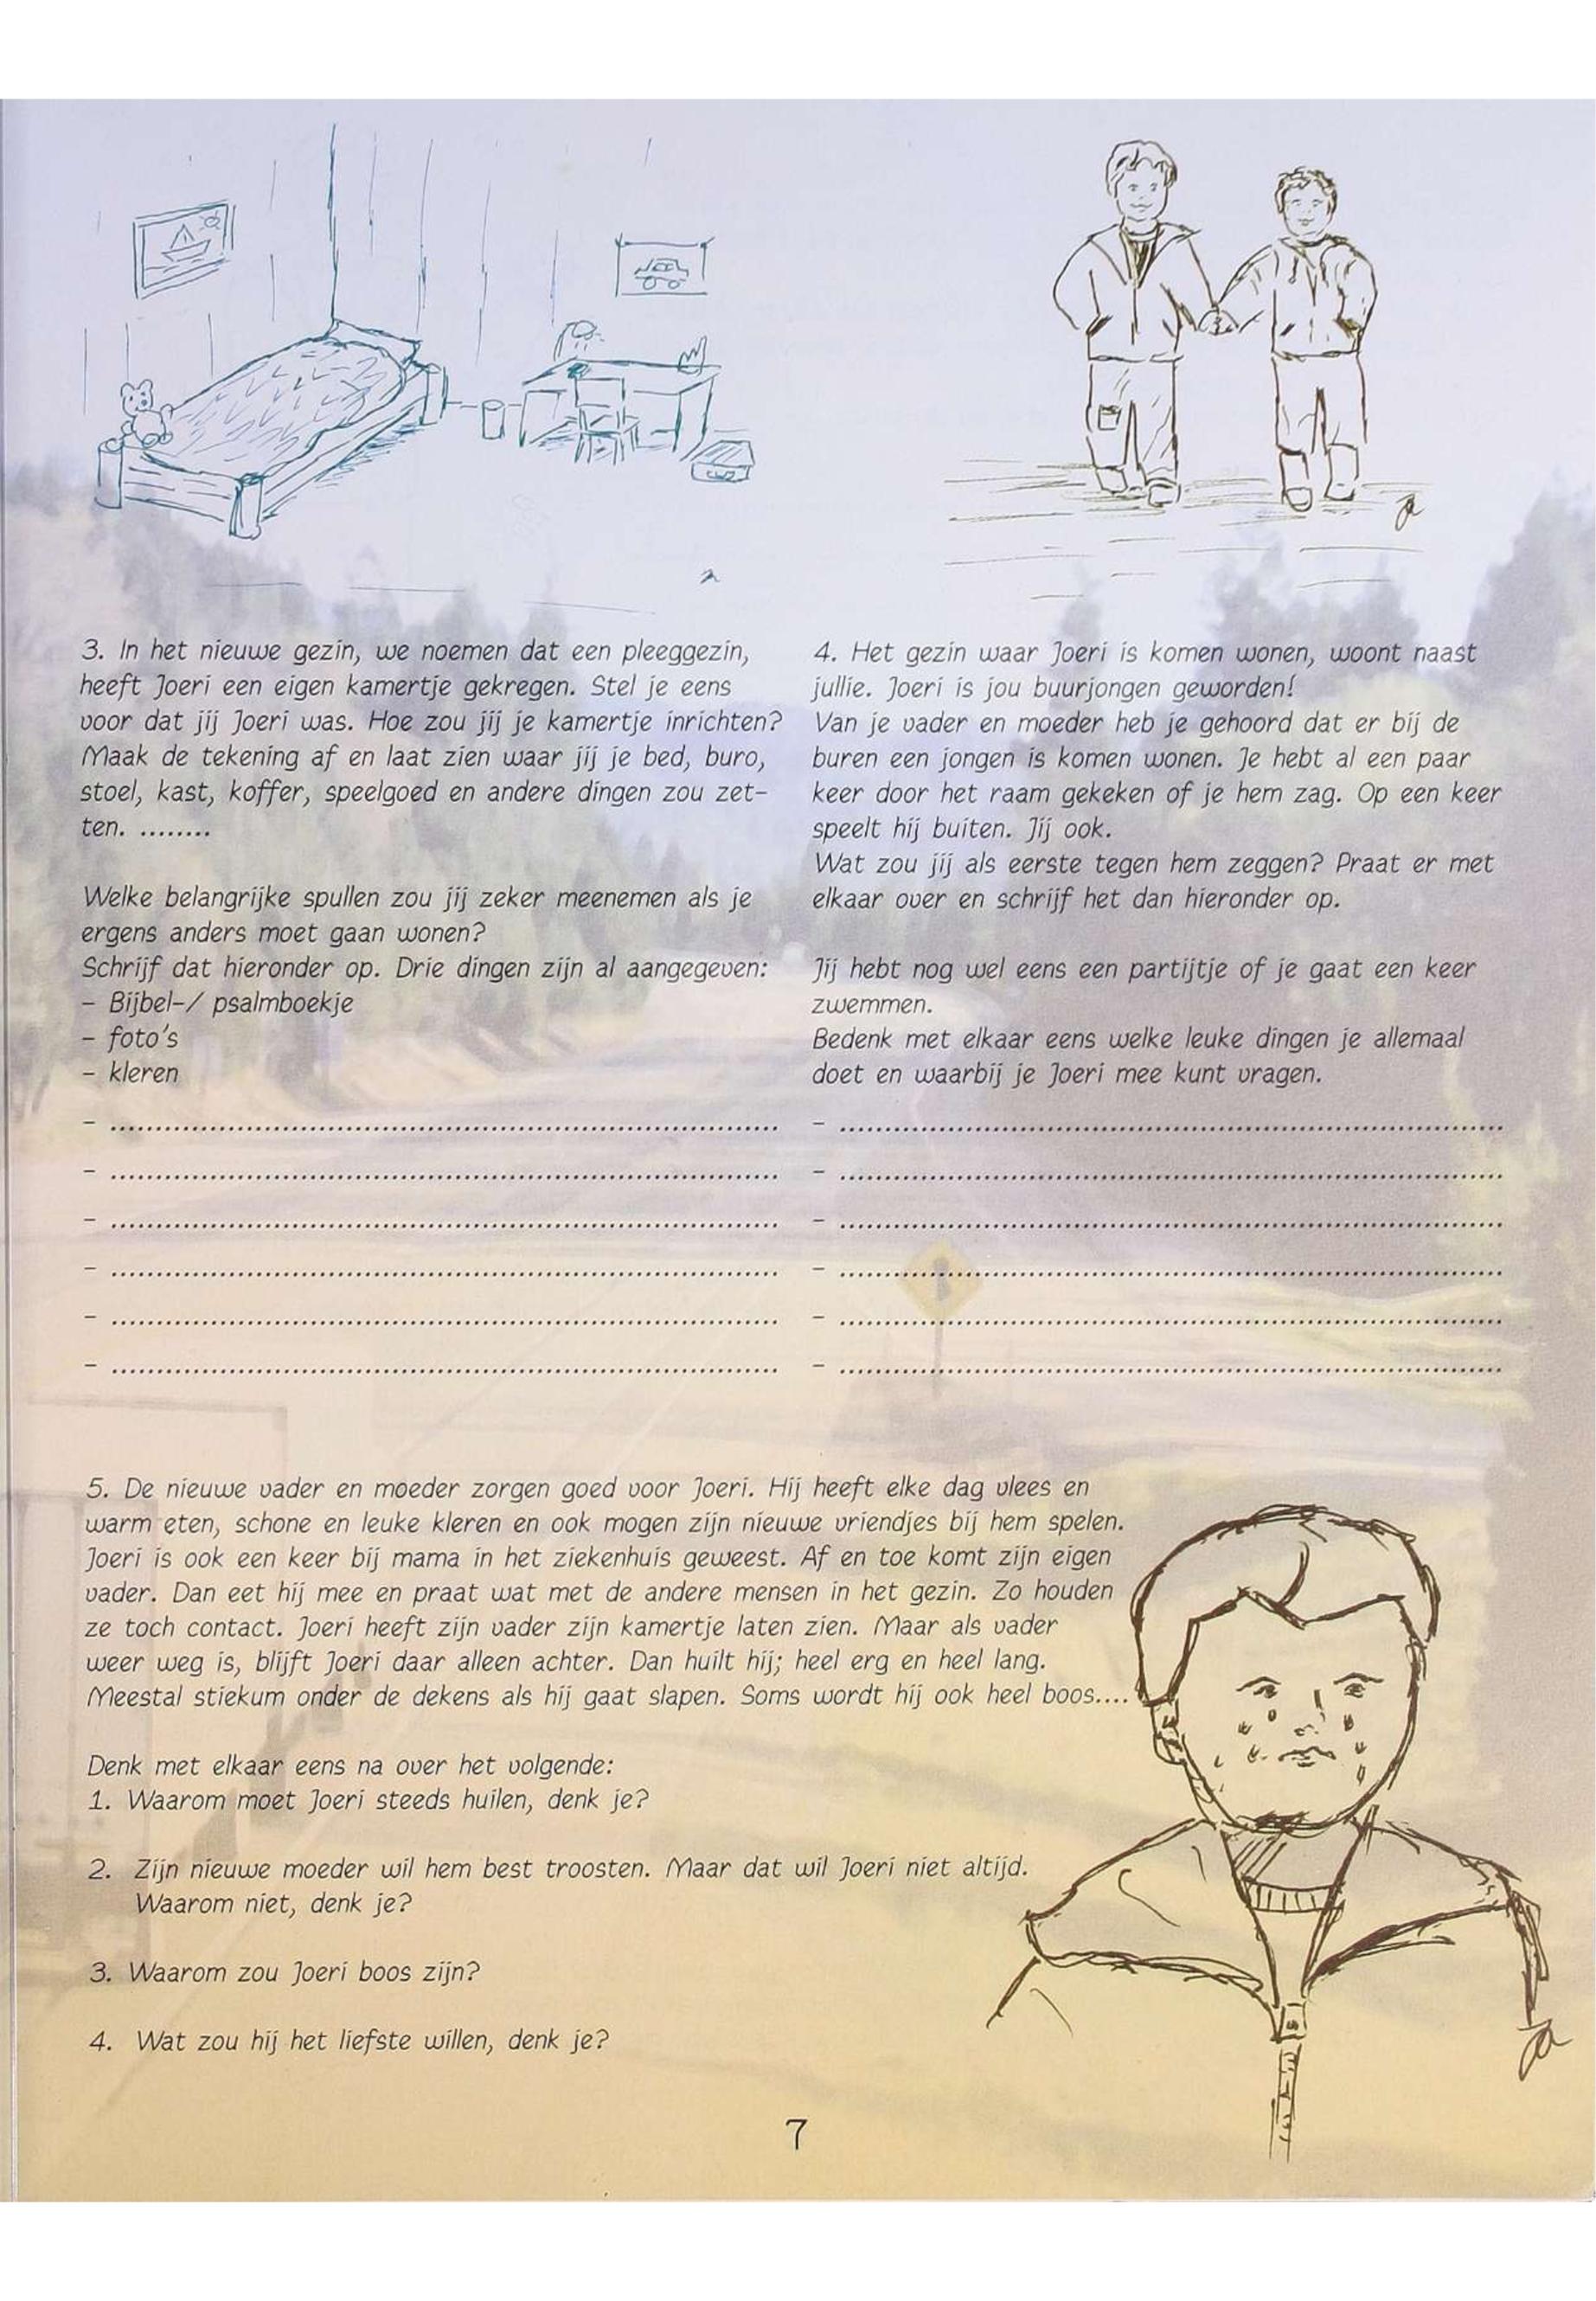 3. In het nieuwe gezin, we noemen dat een pleeggezin,
heeft Joeri een eigen kamertje gekregen. Stel je eens
voor dat jij Joeri was. Hoe zou jij je kamertje inrichten?
Maak de tekening af en laat zien waar jij je bed, buro,
stoel, kast, koffer, speelgoed en andere dingen zou zet-
ten. ........
Welke belangrijke spullen zou jij zeker meenemen als je
ergens anders moet gaan wonen?
Schrijf dat hieronder op. Drie dingen zijn al aangegeven:
- Bijbel-/ psalmboekje
- foto's
- kleren
- ........
- ........
- ........
- ........
- ........
- ........
4. Het gezin waar Joeri is komen wonen, woont naast
jullie. Joeri is jou buurjongen geworden!
Van je vader en moeder heb je gehoord dat er bij de
buren een jongen is komen wonen. Je hebt al een paar
keer door het raam gekeken of je hem zag. Op een keer
speelt hij buiten. Jij ook.
Wat zou jij als eerste tegen hem zeggen? Praat er met
elkaar over en schrijf het dan hieronder op.
Jij hebt nog wel eens een partijtje of je gaat een keer
zwemmen.
Bedenk met elkaar eens welke leuke dingen je allemaal
doet en waarbij je Joeri mee kunt vragen.
- ........
- ........
- ........
- ........
- ........
- ........
5. De nieuwe vader en moeder zorgen goed voor Joeri. Hij heeft elke dag vlees en
warm eten, schone en leuke kleren en ook mogen zijn nieuwe vriendjes bij hem spelen.
Joeri is ook een keer bij mama in het ziekenhuis geweest. Af en toe komt zijn eigen
vader. Dan eet hij mee en praat wat met de andere mensen in het gezin. Zo houden
ze toch contact. Joeri heeft zijn vader zijn kamertje laten zien. Maar als vader
weer weg is, blijft Joeri daar alleen achter. Dan huilt hij; heel erg en heel lang.
Meestal stiekum onder de dekens als hij gaat slapen. Soms wordt hij ook heel boos....
Denk met elkaar eens na over het volgende:
1. Waarom moet Joeri steeds huilen, denk je?
2. Zijn nieuwe moeder wil hem best troosten. Maar dat wil Joeri niet altijd.
Waarom niet, denk je?
3. Waarom zou Joeri boos zijn?
4. Wat zou hij het liefste willen, denk je?
7